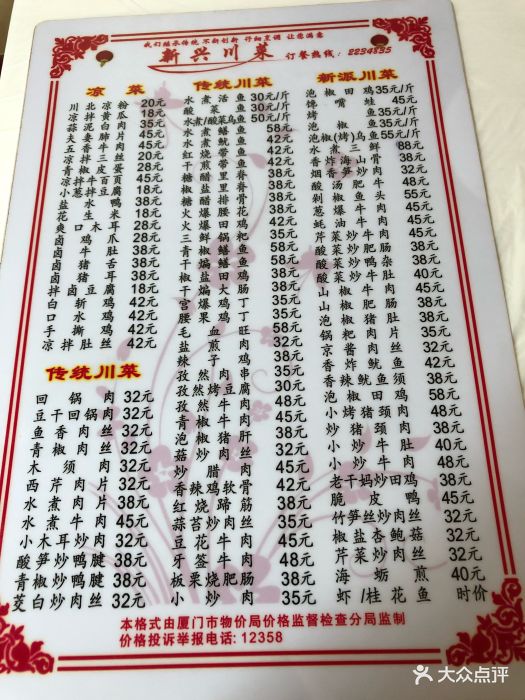 我们继承传统 不断创新 仔细烹调 让您满意
新兴川菜 订餐热线：2234835
凉菜
川北凉粉 20元
凉拌黄瓜 18元
蒜泥白肉 35元
夫妻肺片 45元
五香牛肉 45元
凉拌三丝 20元
青椒皮蛋 28元
凉拌牛百页 45元
小葱拌豆腐 18元
盐水鸭 38元
花生米 18元
爽口木耳 28元
卤鸡爪 28元
卤牛肚 38元
卤猪舌 38元
卤猪耳 38元
拌卤豆腐 18元
白斩鸡 42元
口水鸡 42元
手撕鸡 42元
凉拌肚丝 42元
传统川菜
回锅肉 32元
豆干回锅肉 32元
鱼香肉丝 32元
青椒肉丝 32元
木须肉 32元
西芹肉片 32元
水煮肉片 38元
水煮牛肉 45元
小木耳炒肉 32元
酸笋炒鸭腱 38元
青椒炒鸭腱 38元
茭白炒肉丝 32元
传统川菜
水煮活鱼 30元/斤
酸菜鱼 30元/斤
水煮/酸菜乌鱼 50元/斤
水煮鳝鱼 58元
水煮鱿鱼 42元
红烧带鱼 42元
干煎带鱼 42元
糖醋里脊 38元
椒盐里脊 38元
糖醋排骨 38元
火爆腰花 38元
三鲜锅粑
青椒鳝鱼
干煸鳝鱼
干椒田鸡
干煸肥肠
宫爆鸡丁 35元
腰果鸡丁 35元
毛血旺
盐煎肉
辣子鸡
孜然肉串
孜然豆腐 30元
孜然牛肉 48元
青椒牛肉
泡椒猪肝
炒腊肉
香辣软骨
红烧蹄筋 38元
蒜苔炒肉 35元
豆花牛肉 48元
牙签牛肉 48元
板栗烧肥肠 38元
新派川菜
泡椒田鸡 35元/斤
馋嘴蛙 45元
烤鱼 35元/斤
泡椒(烤)乌鱼 55元/斤
水煮三鲜 88元
香炸海山骨 38元
烟笋炒肉 38元
酸汤肥牛 48元
剁椒鱼头 55元
葱爆牛肉 45元
蚝油牛肉 48元
芹菜炒牛肉 45元
酸菜炒肥肠 38元
酸菜炒鸭杂 38元
酸菜炒牛肚 40元
山椒牛肉 45元
山椒肥肠 38元
泡椒猪肚 38元
锅粑肉片 35元
京酱肉丝 32元
香炸鱿鱼 38元
香辣鱿鱼须 38元
泡椒田鸡 58元
小烤猪颈肉 38元
炒猪颈肉 38元
小炒牛肚 40元
小炒牛肉 48元
老干妈炒田鸡 38元
脆皮鸭 45元
竹笋丝炒肉丝 32元
椒盐杏鲍菇 32元
芹菜炒肉丝 32元
海蛎煎 40元
虾/桂花鱼 时价
本格式由厦门市物价局价格监督检查分局监制
价格投诉举报电话：12358
大众点评